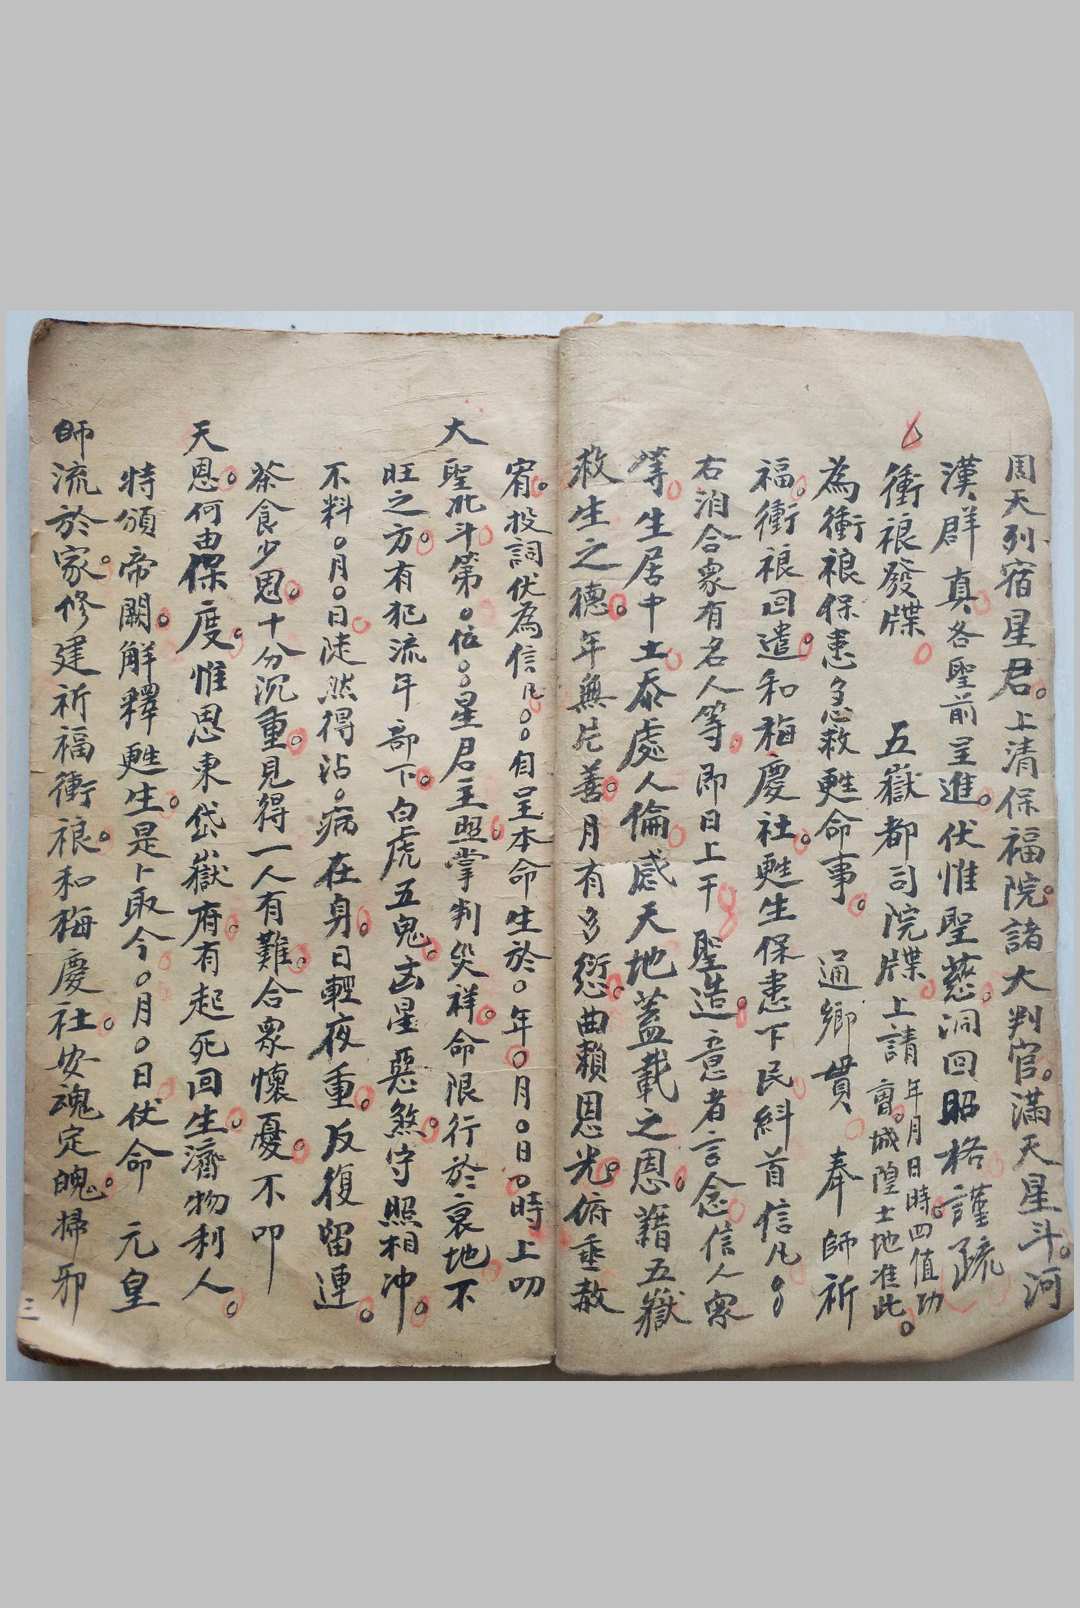 周天列宿星君。上清保福院。諸大判官。滿天星斗。河
漢群真各聖前呈進。伏惟聖慈。洞回昭格謹疏
衝裉發牒 五嶽都司院牒上請年月日時。四值功
曹。城隍土地准此。
為衝裉保患急救甦命事。 通鄉貫 奉師祈
福。衝裉回遣。和梅慶社。甦生保患下民糾首信凡
右洎合衆有名人等即日上干 聖造。意者言念信人家
等。生居中土忝處人倫感天地蓋載之恩。藉五嶽
救生之德。年無片善。月有多愆。曲賴恩光。俯垂赦
宥。投詞伏為信凡○○自呈本命生於○年○月○日○時上叨
大聖北斗第○位○○星君主照。掌判災祥。命限行於衰地不
旺之方。有犯流年部下。白虎五鬼。凶星惡煞。守照相冲。
不料○月○日陡然得沾。病在身。日輕夜重。反復留連。
茶食少思。十分沉重。見得一人有難。合衆懷憂。不叩
天恩。何由保度。惟恩東岱嶽府。有起死回生。濟物利人。
特頒帝闕。解釋甦生。是卜取今○月○日伏命 元皇
師流於家。修建祈福衝裉。和梅慶社。安魂定魄。掃邪
三